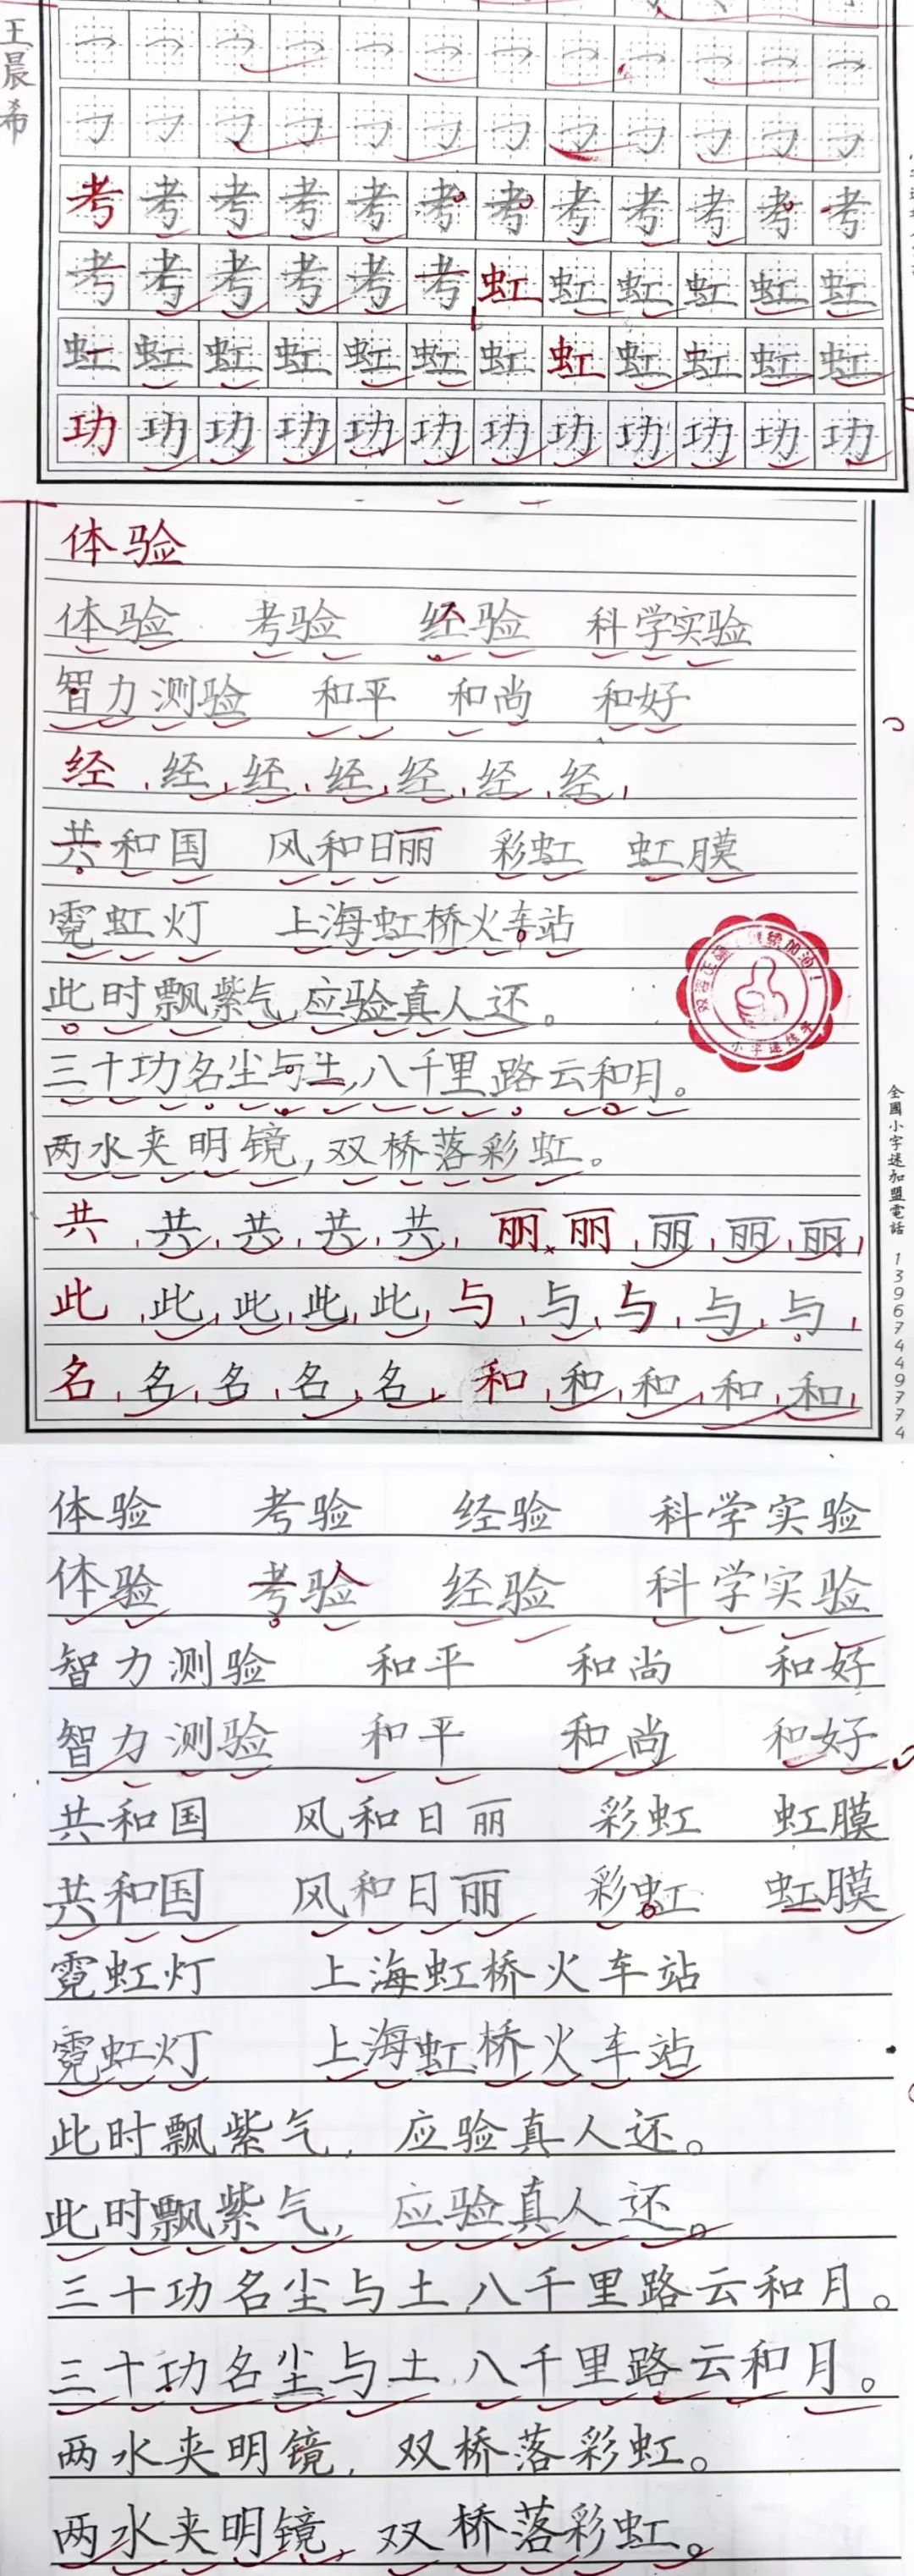 王晨希
考考考考考考考考考考考考
考考考考考考虹虹虹虹虹虹
虹虹虹虹虹虹虹虹虹虹虹虹
功功功功功功功功功功功功
体验
体验 考验 经验 科学实验
智力测验 和平 和尚 和好
经 经 经 经 经 经 经
共和国 风和日丽 彩虹 虹膜
霓虹灯 上海虹桥火车站
此时飘紫气,应验真人还。
三十功名尘与土,八千里路云和月。
两水夹明镜,双桥落彩虹。
共 共 共 共 共 丽 丽 丽 丽 丽
此 此 此 此 此 与 与 与 与 与
名 名 名 名 名 和 和 和 和 和
小字迷练字
全國小字迷加盟電話 13967449774
体验 考验 经验 科学实验
体验 考验 经验 科学实验
智力测验 和平 和尚 和好
智力测验 和平 和尚 和好
共和国 风和日丽 彩虹 虹膜
共和国 风和日丽 彩虹 虹膜
霓虹灯 上海虹桥火车站
霓虹灯 上海虹桥火车站
此时飘紫气,应验真人还。
此时飘紫气,应验真人还。
三十功名尘与土,八千里路云和月。
三十功名尘与土,八千里路云和月。
两水夹明镜,双桥落彩虹。
两水夹明镜,双桥落彩虹。